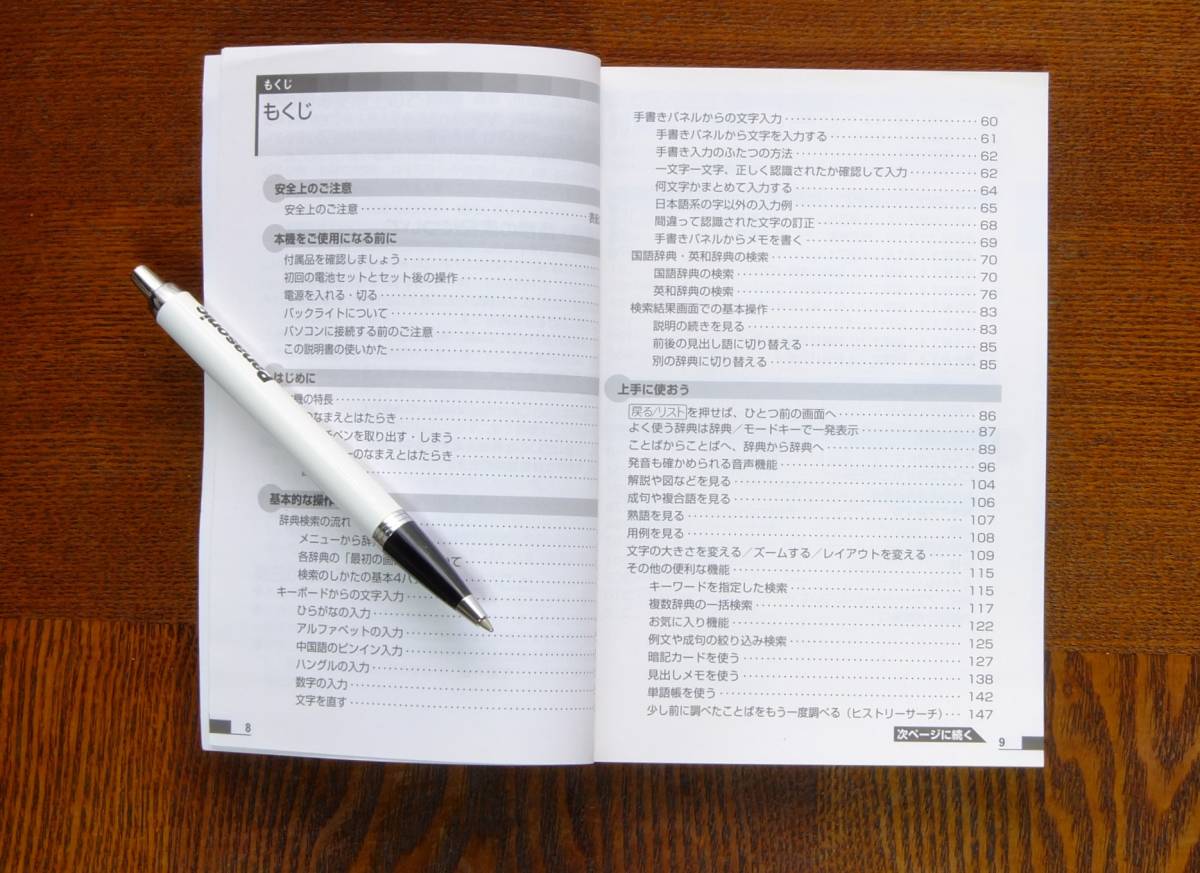 もくじ
もくじ
安全上のご注意
安全上のご注意
本機をご使用になる前に
付属品を確認しましょう
初回の電池セットとセット後の操作
電源を入れる・切る
バックライトについて
パソコンに接続する前のご注意
この説明書の使いかた
はじめに
機の特長
のなまえとはたらき
ペンを取り出す・しまう
ーのなまえとはたらき
基本的な操作
辞典検索の流れ
メニューから辞
各辞典の「最初の画 いて
検索のしかたの基本4パ
キーボードからの文字入力
ひらがなの入力
アルファベットの入力
中国語のピンイン入力
ハングルの入力
数字の入力
文字を直す
8
Panasonic
手書きパネルからの文字入力 60
手書きパネルから文字を入力する 61
手書き入力のふたつの方法 62
一文字一文字、正しく認識されたか確認して入力 62
何文字かまとめて入力する 64
日本語系の字以外の入力例 65
間違って認識された文字の訂正 68
手書きパネルからメモを書く 69
国語辞典・英和辞典の検索 70
国語辞典の検索 70
英和辞典の検索 76
検索結果画面での基本操作 83
説明の続きを見る 83
前後の見出し語に切り替える 85
別の辞典に切り替える 85
上手に使おう
戻る/リストを押せば、ひとつ前の画面へ 86
よく使う辞典は辞典／モードキーで一発表示 87
ことばからことばへ、辞典から辞典へ 89
発音も確かめられる音声機能 96
解説や図などを見る 104
成句や複合語を見る 106
熟語を見る 107
用例を見る 108
文字の大きさを変える／ズームする／レイアウトを変える 109
その他の便利な機能 115
キーワードを指定した検索 115
複数辞典の一括検索 117
お気に入り機能 122
例文や成句の絞り込み検索 125
暗記カードを使う 127
見出しメモを使う 138
単語帳を使う 142
少し前に調べたことばをもう一度調べる（ヒストリーサーチ） 147
次ページに続く
9